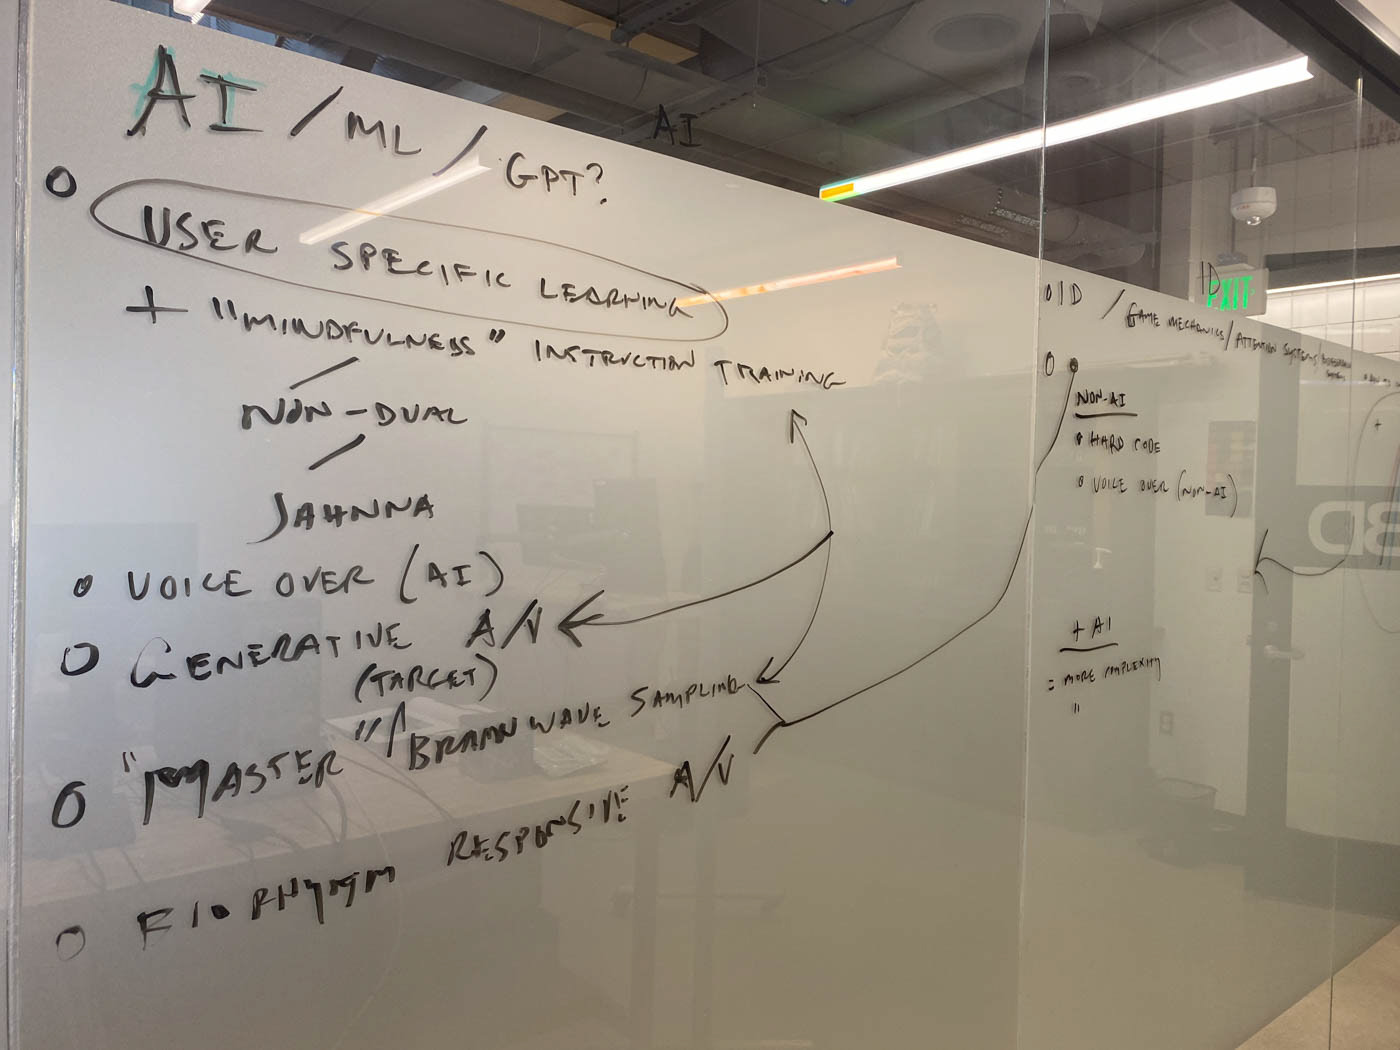 AI / ML / GPT?
USER SPECIFIC LEARNING
+ "MINDFULNESS" INSTRUCTION TRAINING
NON-DUAL
JAHNNA
VOICE OVER (AI)
GENERATIVE A/V
(TARGET)
"MASTER" / BRAINWAVE SAMPLING
RESPONSIVE A/V
AI
ID
EXIT
/ GAME MECHANICS / ATTENTION SYSTEMS /
NON-AI
HARD CODE
VOICE OVER (NON-AI)
+ AI
= MORE COMPLEXITY
"